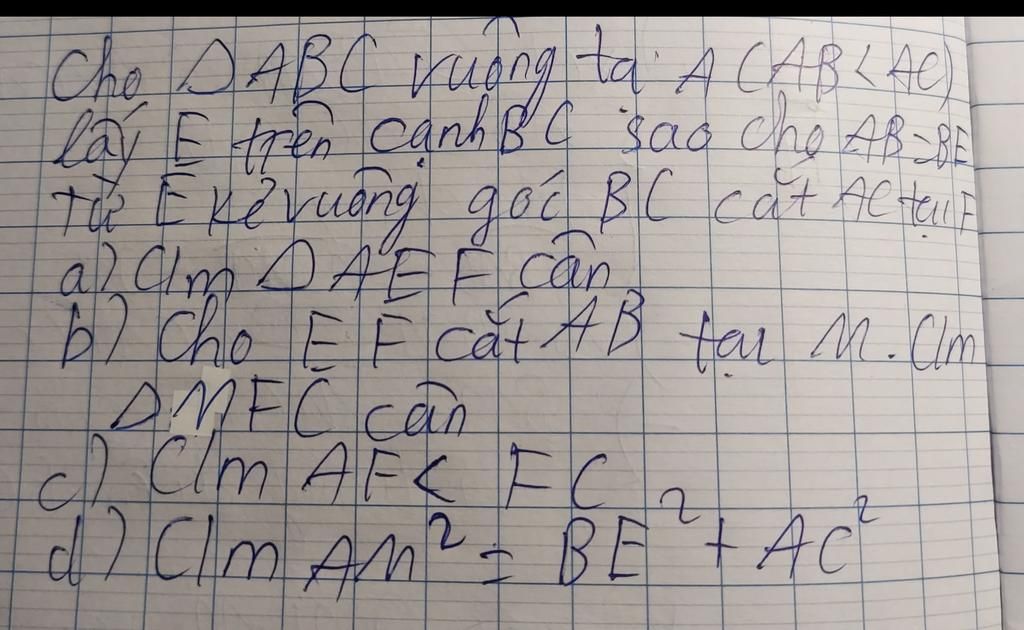 Cho ΔABC vuông tại A (AB < AC)
lấy E trên cạnh BC sao cho AB = BE
từ E kẻ vuông góc BC cắt AC tại F
a) C/m ΔAEF cân
b) Cho EF cắt AB tại M. C/m
ΔMFC cân
c) C/m AF < FC
d) C/m AM² = BE² + AC²